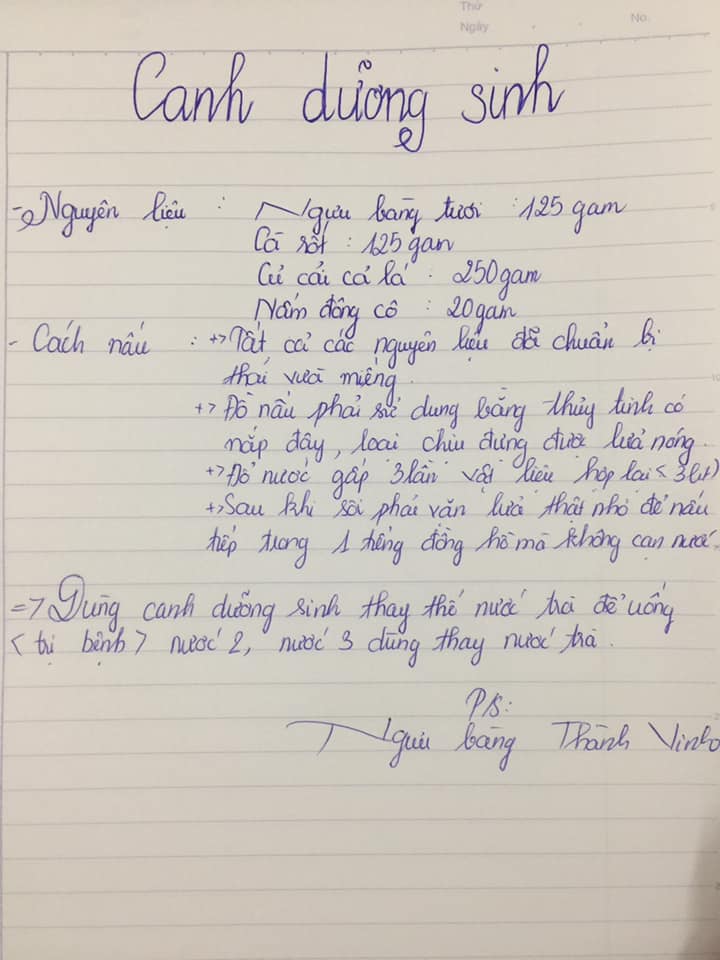 Thứ
Ngày
No.
Canh dưỡng sinh
- Nguyên liệu : Ngưu bàng tươi : 125 gam
Cà rốt : 125 gam
Củ cải cả lá : 250 gam
Nấm đông cô : 20 gam
- Cách nấu : +> Tất cả các nguyên liệu đã chuẩn bị
thái vừa miếng.
+> Đồ nấu phải sử dụng bằng thủy tinh có
nắp đậy, loại chịu đựng được lửa nóng.
+> Đổ nước gấp 3 lần vật liệu hợp lại < 3 lít >
+> Sau khi sôi phải vặn lửa thật nhỏ để nấu
tiếp trong 1 tiếng đồng hồ mà không cạn nước.
=> Dùng canh dưỡng sinh thay thế nước trà để uống
< trị bệnh > nước 2, nước 3 dùng thay nước trà.
P/s:
Ngưu bàng Thành Vinh